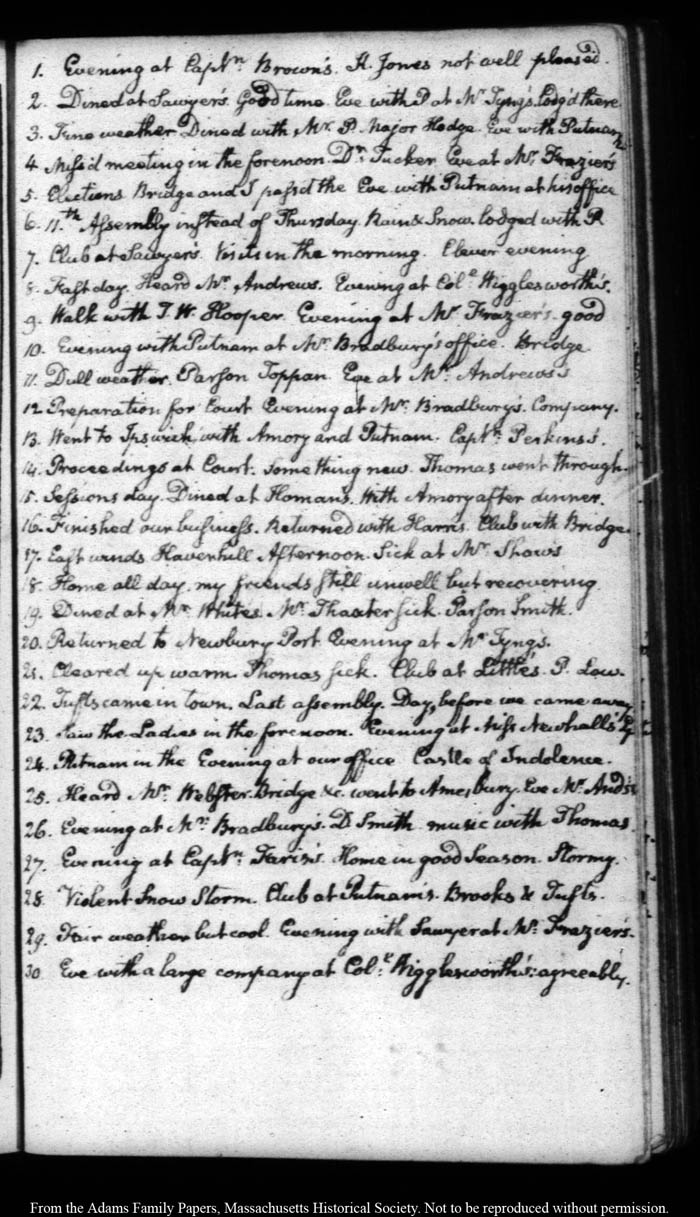 1. Evening at Captn. Brown's. H. Jones not well pleased.
2. Dined at Sawyer's. Good time. Eve with P at Mr Tyng's. lodg'd there
3. Fine weather. Dined with Mr. P. Major Hodge. Eve with Putnam
4 Miss'd meeting in the forenoon. Dr. Tucker. Eve at Mr. Frazier's
5. Elections. Bridge and I pass'd the Eve with Putnam at his office
6. 11th. Assembly instead of Thursday. Rain & Snow. lodged with P.
7. Club at Sawyer's. Visits in the morning. Clever evening
8. Fast day. Heard Mr. Andrews. Evening at Coll. Wigglesworth's.
9. Walk with T. W. Hooper. Evening at Mr. Frazier's. good
10. Evening with Putnam at Mr. Bradbury's office. Bridge
11. Dull weather. Parson Toppan. Eve at Mr. Andrews's
12 Preparation for Court Evening at Mr. Bradbury's. Company.
13. Went to Ipswich with Amory and Putnam. Captn. Perkins's.
14. Proceedings at Court. Something new. Thomas went through.
15. Sessions day. Dined at Homan's. With Amory after dinner.
16. Finished our business. Returned with Harris. Club with Bridge.
17. East winds Haverhill Afternoon. Sick at Mr. Shaw's
18. Home all day. my friends still unwell but recovering
19. Dined at Mr. White's. Mr. Thaxter sick. Parson Smith.
20. Returned to Newbury Port Evening at Mr Tyng's.
21. Cleared up warm. Thomas sick. Club at Little's. P. Law.
22. Tufts came in town. Last assembly. Day, before we came away
23. Saw the Ladies in the forenoon. Evening at Miss Newhall's
24. Putnam in the Evening at our office Castle of Indolence.
25. Heard Mr. Webster. Bridge &c. went to Amesbury. Eve Mr. And's
26. Evening at Mr. Bradbury's. D Smith. music with Thomas.
27. Evening at Captn. Faris's. Home in good Season. Stormy.
28. Violent Snow Storm. Club at Putnam's. Brooks & Tufts.
29. Fair weather but cool. Evening with Sawyer at Mr. Frazier's.
30 Eve with a large company at Coll. Wigglesworth's: agreeably.
From the Adams Family Papers, Massachusetts Historical Society. Not to be reproduced without permission.